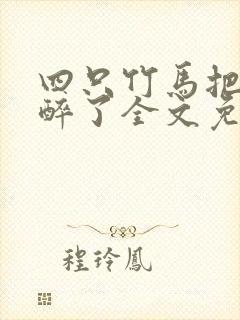 四只竹马把
醉了全文免
程玲鳳